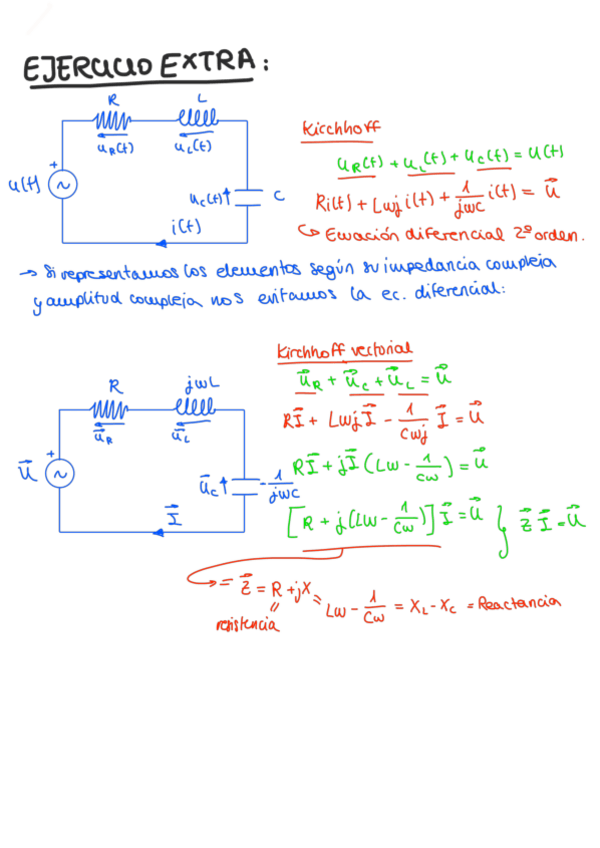 EJERCICIO EXTRA:
R L
uR(t) uL(t)
u(t) + ~ uc(t) C
i(t)
Kirchhoff
uR(t) + uL(t) + uc(t) = u(t)
Ri(t) + Lωj i(t) + 1/jωC i(t) = U⃗
↳ Ecuación diferencial 2º orden.
→ Si representamos los elementos según su impedancia compleja
y amplitud compleja nos evitamos la ec. diferencial:
R jωL
u⃗R u⃗L
U⃗ + ~ u⃗c -1/jωC
I⃗
Kirchhoff vectorial
u⃗R + u⃗c + u⃗L = u⃗
RI⃗ + LωjI⃗ - 1/Cωj I⃗ = U⃗
RI⃗ + jI⃗ (Lω - 1/Cω) = U⃗
[R + j(Lω - 1/Cω)] I⃗ = U⃗ } Z⃗ I⃗ = U⃗
→ = Z⃗ = R + jX = Lω - 1/Cω = XL - Xc = Reactancia
resistencia